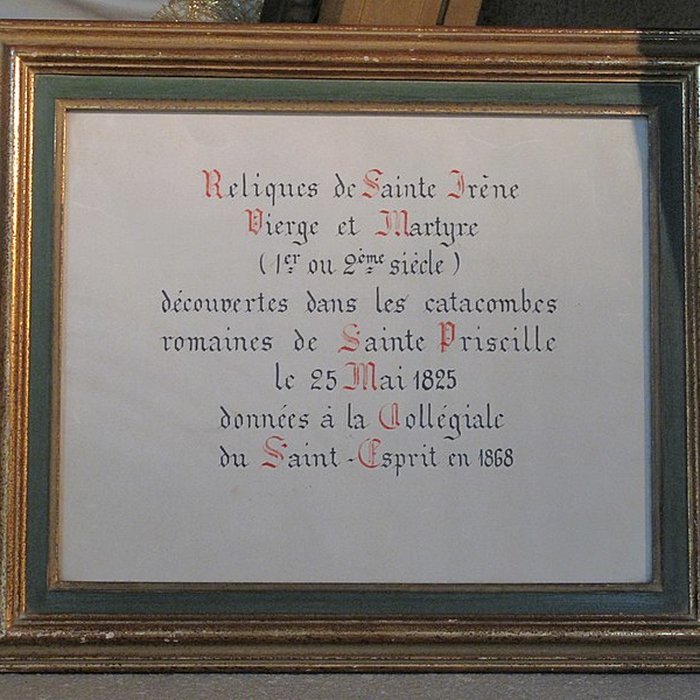 Reliques de Sainte Irène
Vierge et Martyre
(1er ou 2ème siècle)
découvertes dans les catacombes
romaines de Sainte Priscille
le 25 Mai 1825
données à la Collégiale
du Saint-Esprit en 1868